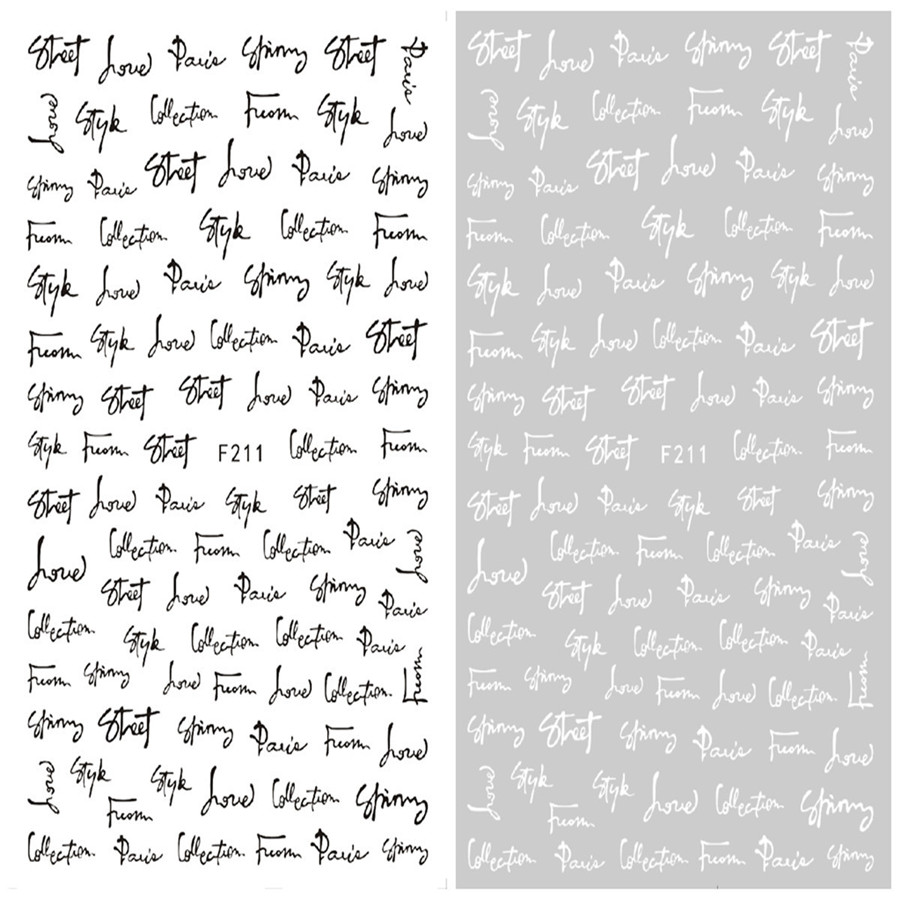 Street Love Paris Spinny Street Paris
Love Style Collection From Style Love
Spinny Paris Street Love Paris Spinny
From Collection Style Collection From
Style Love Paris Spinny Style Love
From Style Love Collection Paris Street
Spinny Street Street Love Paris Spinny
Style From Street F211 Collection From
Street Love Paris Style Street Spinny
Love Collection From Collection Paris Love
Street Love Paris Spinny Paris
Collection Style Collection Collection Paris
From Spinny Love From Love Collection From
Spinny Street Spinny Paris From Love
Love Style From Style Love Collection Spinny
Collection Paris Collection From Paris Spinny
Street Love Paris Spinny Street Paris
Love Style Collection From Style Love
Spinny Paris Street Love Paris Spinny
From Collection Style Collection From
Style Love Paris Spinny Style Love
From Style Love Collection Paris Street
Spinny Street Street Love Paris Spinny
Style From Street F211 Collection From
Street Love Paris Style Street Spinny
Love Collection From Collection Paris Love
Street Love Paris Spinny Paris
Collection Style Collection Collection Paris
From Spinny Love From Love Collection From
Spinny Street Spinny Paris From Love
Love Style From Style Love Collection Spinny
Collection Paris Collection From Paris Spinny